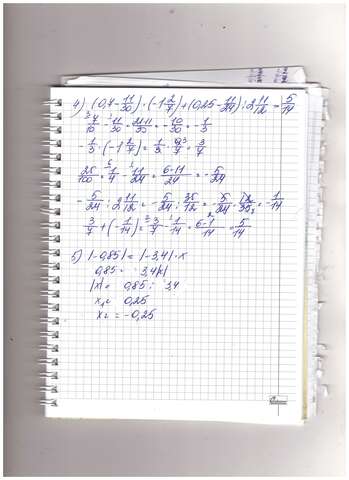 4) (0,4-11/30)·(-1 2/7)+(0,25-11/24):2 11/12=5/14
4/10-11/30=12-11/30=-10/30=-1/3
-1/3·(-1 2/7)=1/3·9/7=3/7
25/100=1/4-11/24=6-11/24=-5/24
-5/24:2 11/12=-5/24:35/12=-5/24·12/35=-1/14
3/7+(-1/14)=3/7-1/14=6-1/14=5/14
5) |-0,85|=|-3,4|·x
0,85=3,4|x|
|x|=0,85:3,4
x₁=0,25
x₂=-0,25